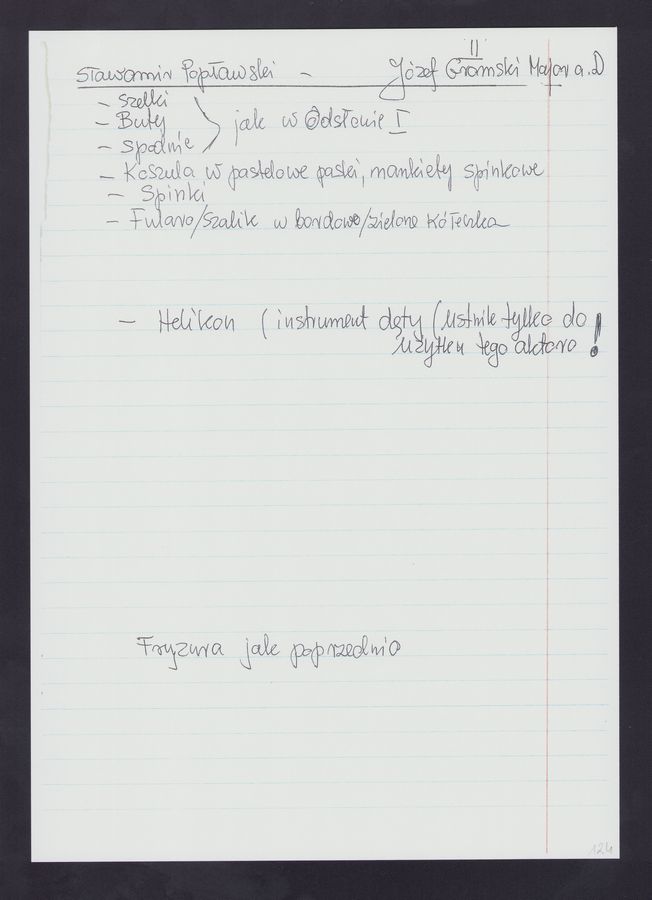 II
Sławomir Popławski - Józef Gromski Major a.D
- Szelki
- Buty
- Spodnie
jak w Odsłonie I
- Koszula w pastelowe paski, mankiety spinkowe
- Spinki
- Fularo/Szalik w bordowe/zielone kółeczka
- Helikon (instrument dęty (Ustnik tylko do
użytku tego aktora !
Fryzura jak poprzednio
124